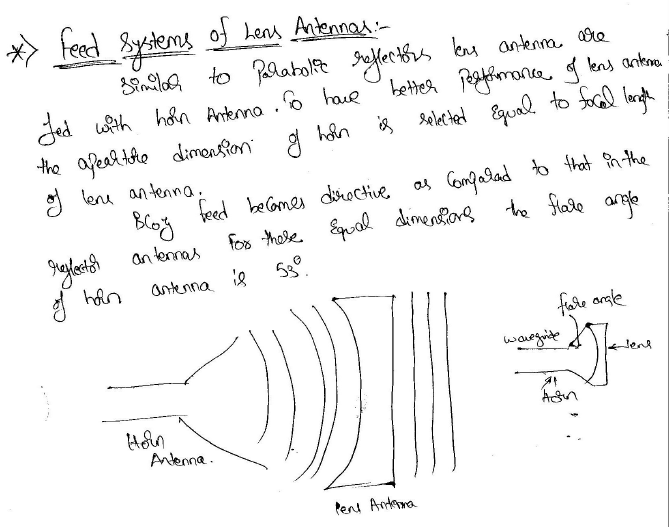 *> Feed Systems of Lens Antennas:-
Similar to Parabolic reflectors lens antenna are
fed with horn Antenna. To have better Performance of lens antenna
the aperture dimension of horn is selected Equal to focal length
of lens antenna.
BCoz feed becomes directive as Compared to that in the
reflector antennas For these Equal dimensions the flare angle
of horn antenna is 53°.
flare angle
waveguide
lens
Horn
Horn
Antenna.
lens Antenna